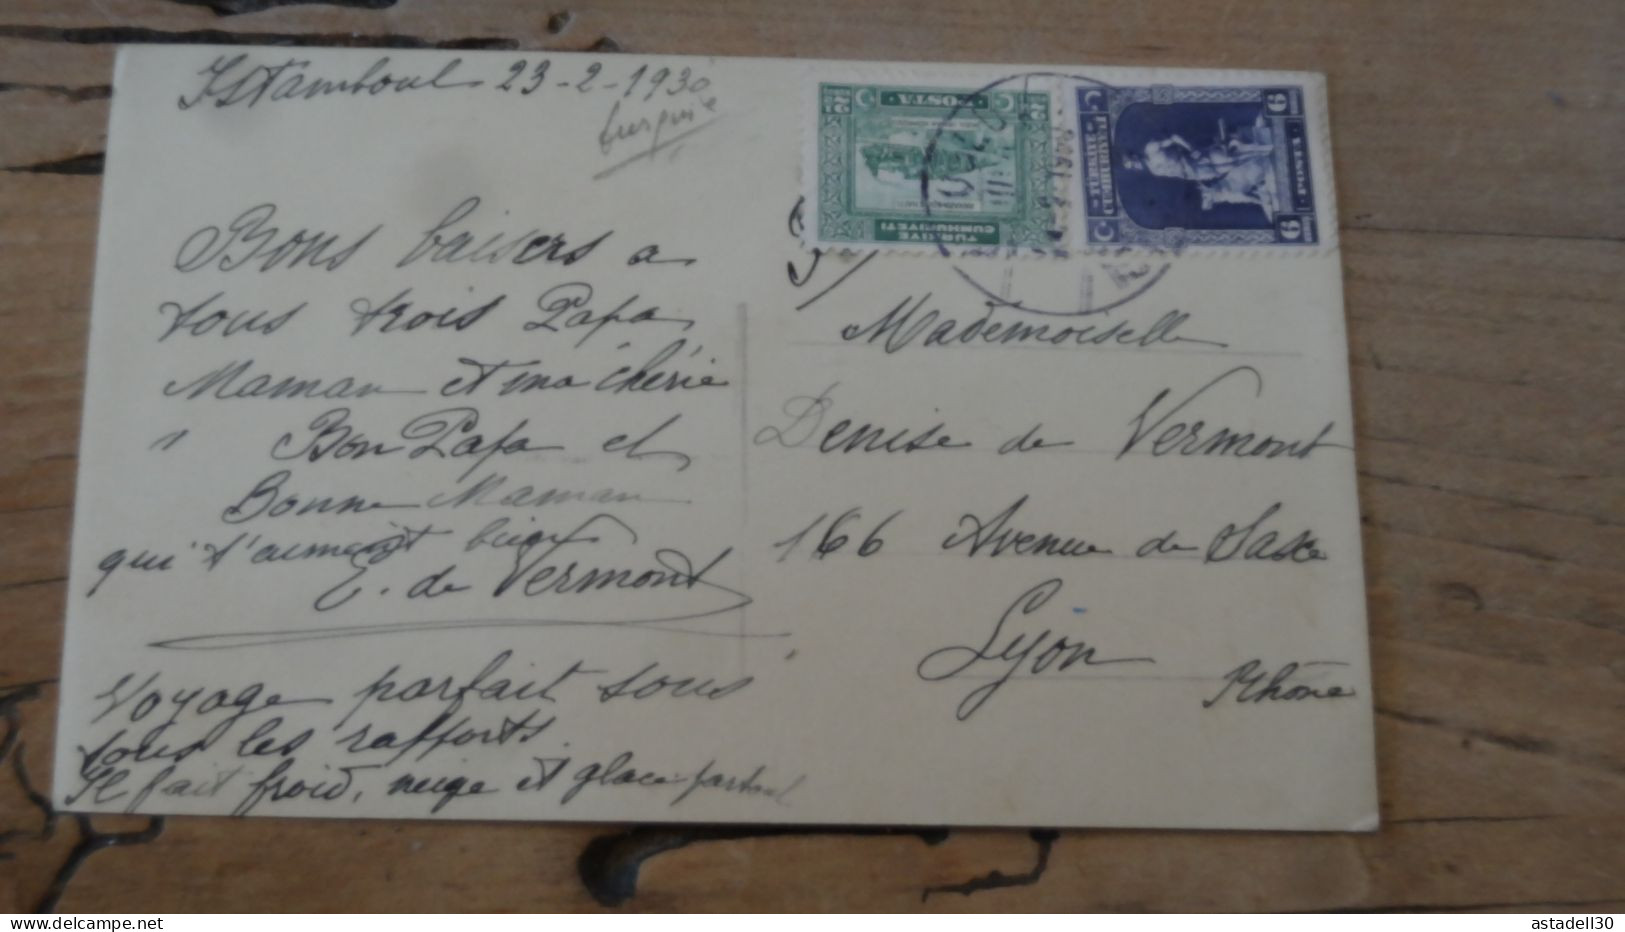 Istamboul 23-2-1930
turquie
Bons baisers a
tous trois Papa
Maman et ma chérie
" Bon Papa et
Bonne Maman
qui t'aiment bien
E. de Vermont
Voyage parfait sous
tous les rapports
Il fait froid, neige et glace partout
TÜRKİYE
CUMHURİYETİ
POSTA
TÜRKİYE
CUMHURİYETİ
POSTA
6
6
Mademoiselle
Denise de Vermont
166 Avenue de Saxe
Lyon
Rhône
www.delcampe.net
astadell30